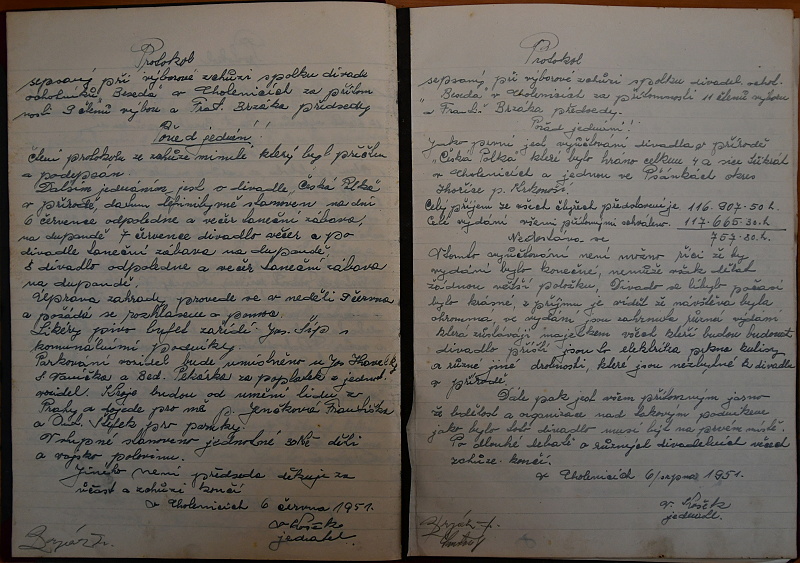 Protokol
sepsaný při výborové schůzi spolku divade
ochotníků "Beseda" v Cholenicích za přítom
nosti 9 členů výboru a Frat. Brzáka předsedy
Pořad jednání!
Čtení protokolu ze schůze minulé který byl přečten
a podepsán.
Dalším jednáním jest o divadle, Česká Polka"
v přírodě, datum definitivně stanoven na dni
6 července odpoledne a večer taneční zábava,
na dupandě 7 července divadlo večer a po
divadle taneční zábava na dupandě,
8 divadlo odpoledne a večer taneční zábava
na dupandě.
Úprava zahrady provede se v neděli 9 června
a požádá se rozhlasem o pomoc.
Likéry pivo bufet zařídí Jos. Šíp s
komunálními podniky.
Parkování vozidel bude umístněno u Jos
a Bed. Pekárka za poplatek z jednot.
vozidel. Kroje budou od umění lidu z
Prahy a dojede pro ně p. Jenáčková Františka
a Old. Štefek pro paruky.
Vstupné stanoveno jednotné 30 Kč děti
a vojsko polovinu.
Jiného není předseda děkuje za
účast a schůzi končí
v Cholenicích 6 června 1951.
V. Košek
jednatel.
Brzák Fr.
Protokol
sepsaný při výborové schůzi spolku divadel. ochot.
"Beseda" v Cholenicích za přítomnosti 11 členů výboru
a Frant. Brzáka předsedy.
Pořad jednání!
Jako první jest vyúčtování divadla v přírodě
"Česká Polka" které bylo hráno celkem 4 a sice
v Cholenicích a jednou ve Psánkách okres
Hořice p. Krkonoš.
Celý příjem ze všech čtyřech představení je 116.907.50 h.
Celé vydání všemi přítomnými schváleno. 117.665.30 h.
Nedostává se 757.80 h.
V tomto vyúčtování není možno říci že by
vydání bylo konečné, nemůže však dělat
žádnou větší položku, Divadlo se líbilo počasí
bylo krásné, z příjmu je vidět že návštěva byla
ohromná, ve vydání jsou zahrnuta různé vydání
která zůstávají majetkem všech kteří budou budovat
divadlo příští jsou to elektrika pykna kulisy
a různe jiné drobnosti, které jsou nezbytné k divadlu
v přírodě.
Dále pak jest všem přítomným jasno
že bdělost a organizace nad takovým podnikem
jako bylo toto divadlo musí býti na prvém místě.
Po dlouhé debatě o různých divadelních věcech
schůze končí.
v Cholenicích 6/srpna 1951.
V. Košek
jednatel.
Brzák Fr.